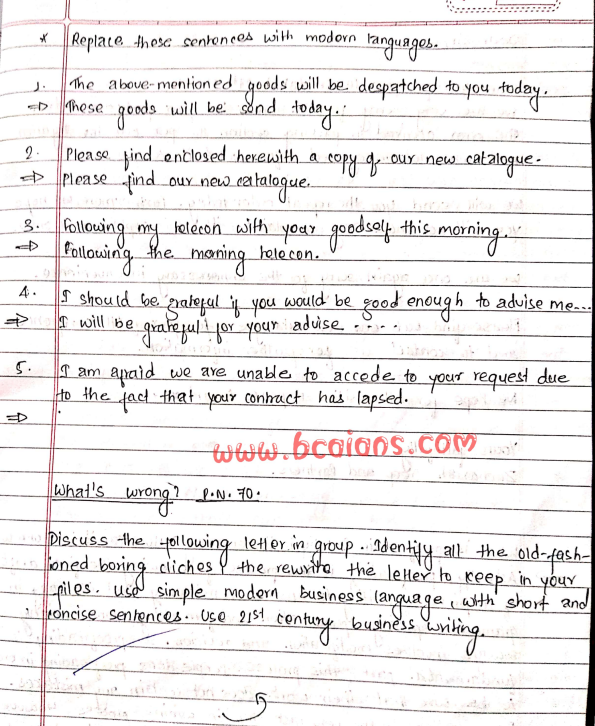 * Replace these sentences with modern languages.
1. The above-mentioned goods will be despatched to you today.
=> These goods will be sond today.
2. Please find enclosed herewith a copy of our new catalogue.
=> Please find our new catalogue.
3. Following my telecon with your goodself this morning.
=> Following the morning telecon.
4. I should be grateful if you would be good enough to advise me...
=> I will be grateful for your advise .....
5. I am afraid we are unable to accede to your request due
to the fact that your contract has lapsed.
=>
www.bcoions.com
What's wrong? P.N. 70.
Discuss the following letter in group. Identify all the old-fash-
ioned boring cliches, the rewrite the letter to keep in your
files. Use simple modern business language, with short and
concise sentences. Use 21st century business writing.